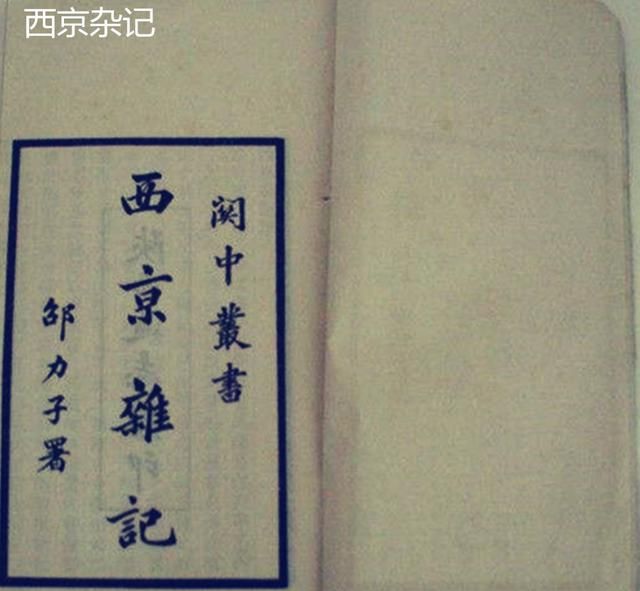 西京杂记
関中叢書
西京雜記
邵力子署